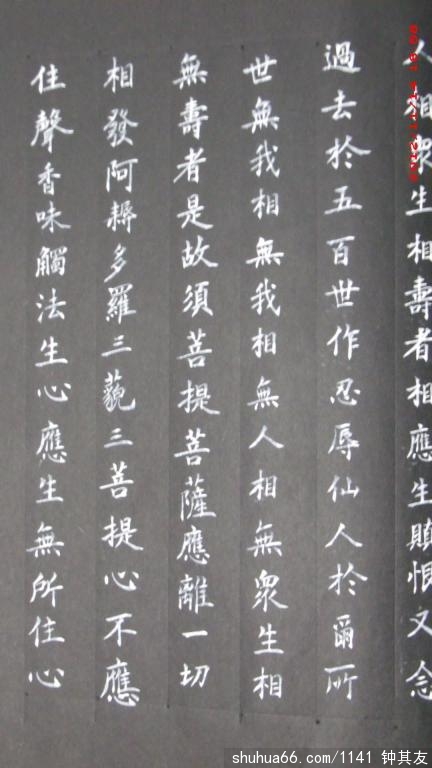 人相衆生相壽者相應生瞋恨又念
過去於五百世作忍辱仙人於爾所
世無我相無我相無人相無衆生相
無壽者是故須菩提菩薩應離一切
相發阿耨多羅三藐三菩提心不應
住聲香味觸法生心應生無所住心
shuhua66.com/1141 钟其友